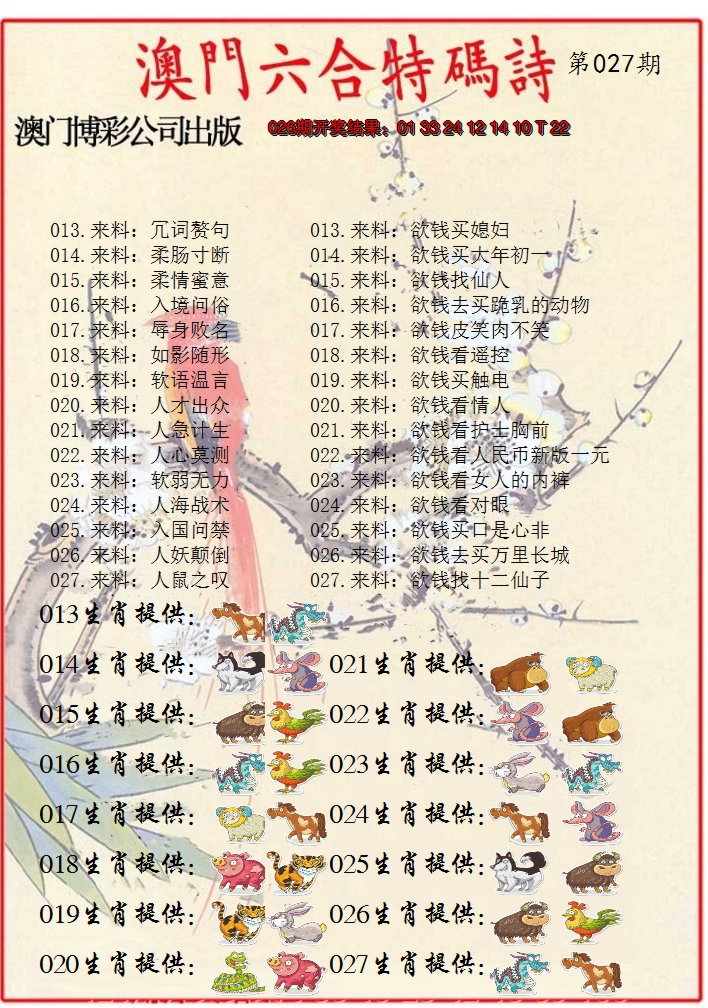 澳門六合特碼詩 第027期
澳门博彩公司出版 026期开奖结果：01 33 24 12 14 10 T 22
013.来料：冗词赘句 013.来料：欲钱买媳妇
014.来料：柔肠寸断 014.来料：欲钱买大年初一
015.来料：柔情蜜意 015.来料：欲钱找仙人
016.来料：入境问俗 016.来料：欲钱去买跪乳的动物
017.来料：辱身败名 017.来料：欲钱皮笑肉不笑
018.来料：如影随形 018.来料：欲钱看遥控
019.来料：软语温言 019.来料：欲钱买触电
020.来料：人才出众 020.来料：欲钱看情人
021.来料：人急计生 021.来料：欲钱看护士胸前
022.来料：人心莫测 022.来料：欲钱看人民币新版一元
023.来料：软弱无力 023.来料：欲钱看女人的内裤
024.来料：人海战术 024.来料：欲钱看对眼
025.来料：入国问禁 025.来料：欲钱买口是心非
026.来料：人妖颠倒 026.来料：欲钱去买万里长城
027.来料：人鼠之叹 027.来料：欲钱找十二仙子
013生肖提供：
014生肖提供： 021生肖提供：
015生肖提供： 022生肖提供：
016生肖提供： 023生肖提供：
017生肖提供： 024生肖提供：
018生肖提供： 025生肖提供：
019生肖提供： 026生肖提供：
020生肖提供： 027生肖提供：